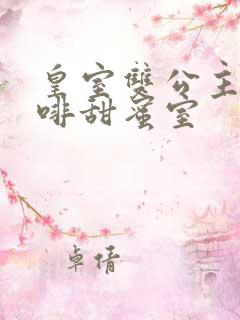 皇室雙公主
啡甜蜜室
卓倩